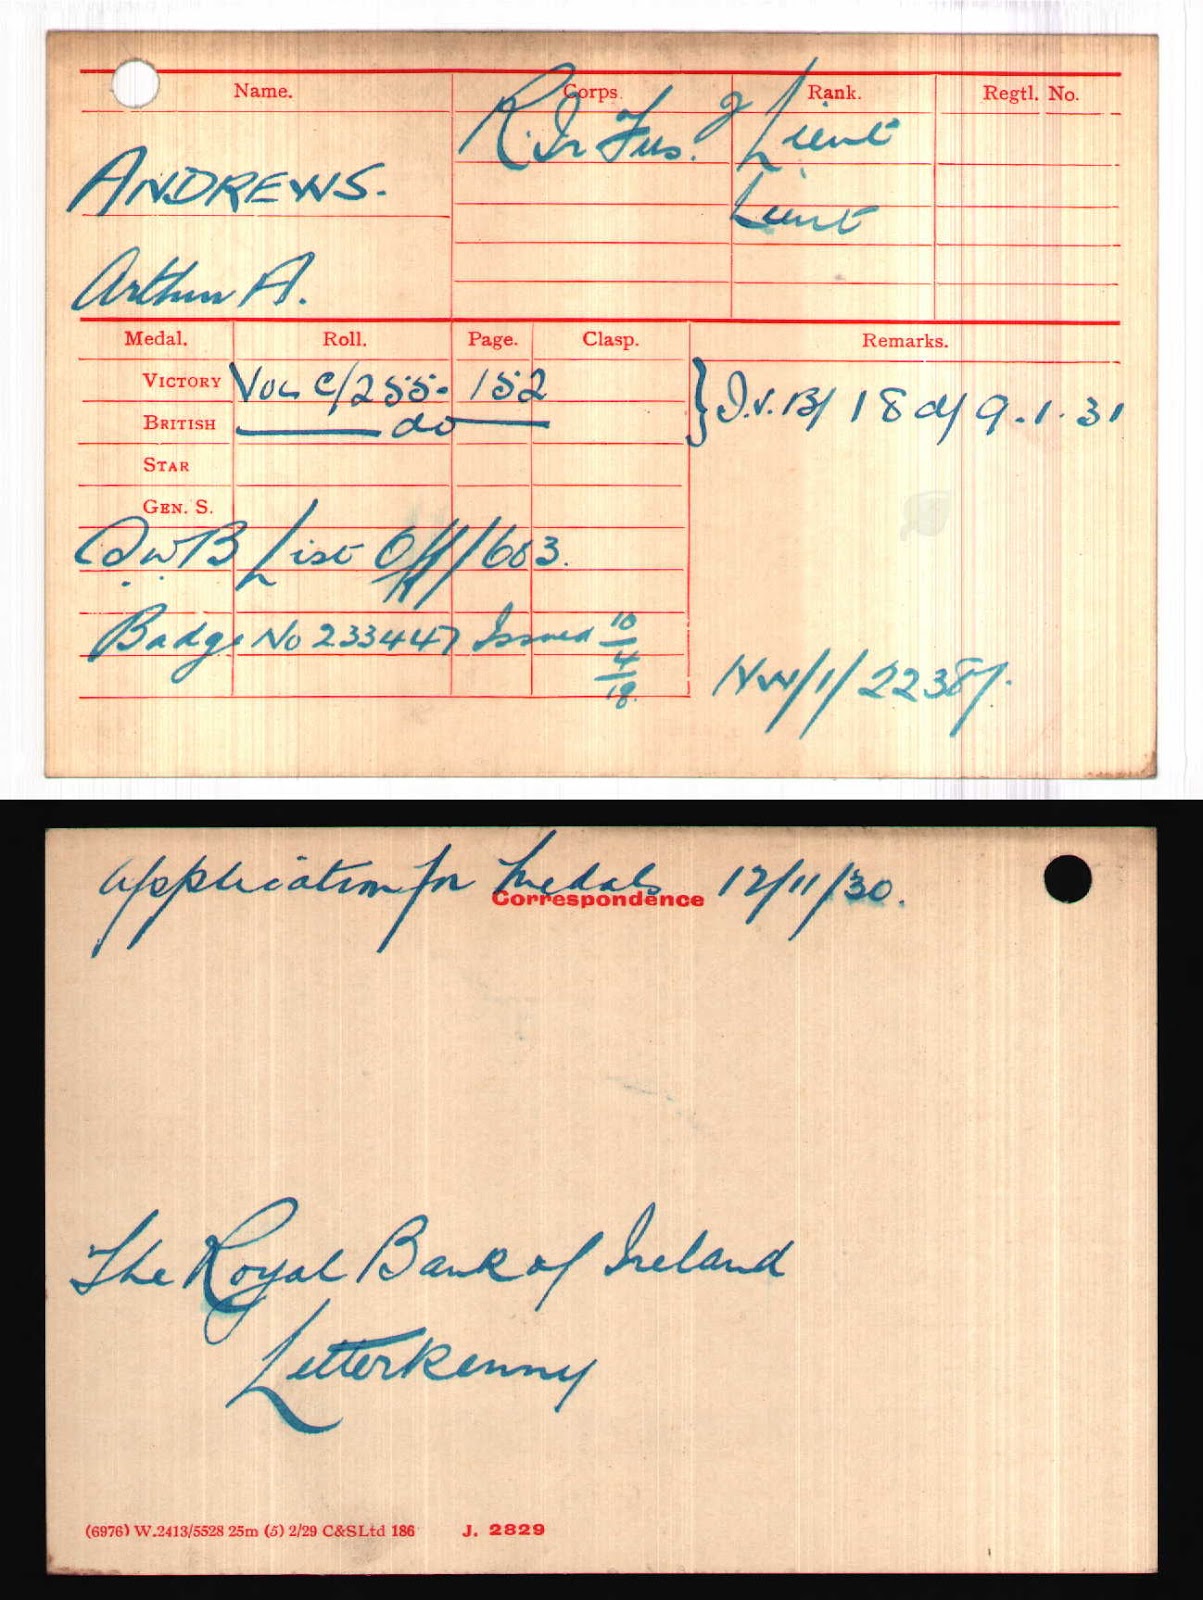 Name. Corps. Rank. Regtl. No.
R. Ir Fus. 2/Lieut
ANDREWS. Lieut
Arthur A.
Medal. Roll. Page. Clasp. Remarks.
VICTORY Vol C/255. 152 } I.V. B/ 18 d/ 9.1.31
BRITISH do
STAR
GEN. S.
S.W.B List Off/603.
Badge No 233447 Issued 10/4/18.
NW/1/22387.
Application for Medals 12/11/30.
Correspondence
The Royal Bank of Ireland
Letterkenny
(6976) W.2413/5528 25m (5) 2/29 C&SLtd 186 J. 2829